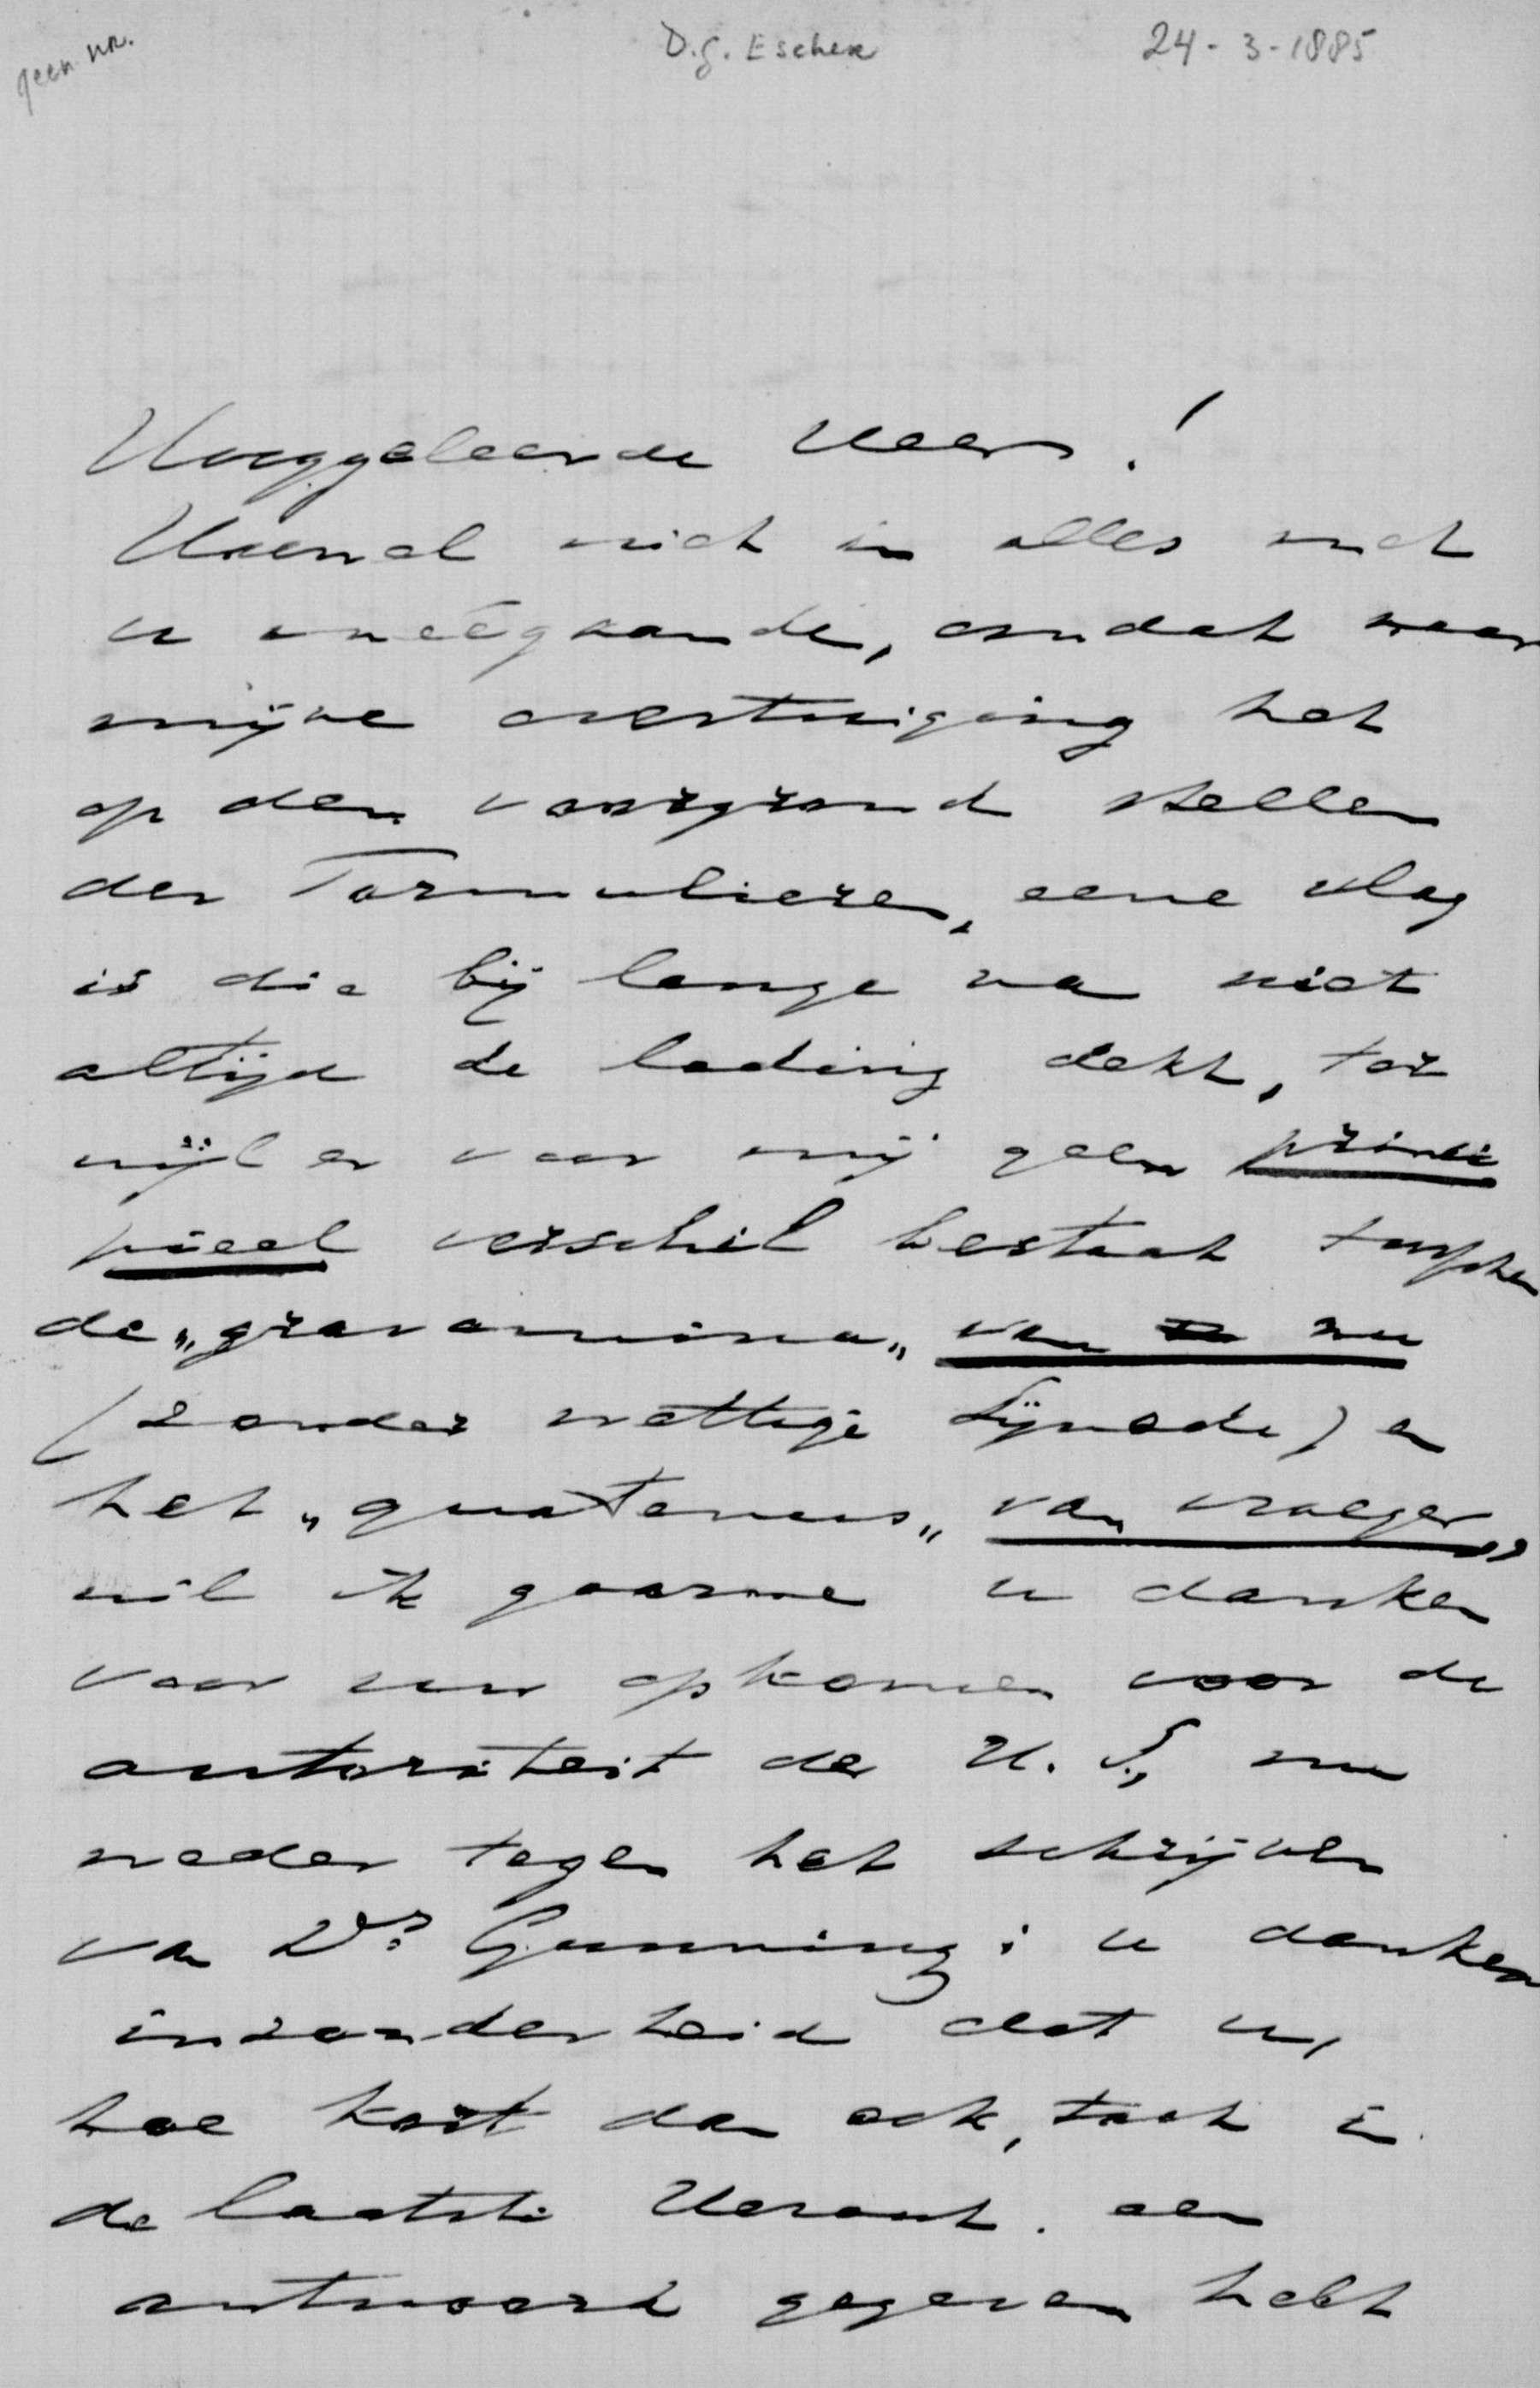 geen nr.
D.G. Escher
24-3-1885
Hooggeleerde Heer!
Hoewel niet in alles met
u meêgaande, omdat naar
mijne overtuiging het
op den voorgrond stellen
der Formulieren, eene vlag
is die bij lange na niet
altijd de lading dekt, ter
wijl er voor mij geen princi
pieel verschil bestaat tusschen
de „gravamina„ van nu
(zonder wettige Synode) en
het „quatenus„ van vroeger,
wil ik gaarne u danken
voor uw opkomen voor de
autoriteit der H. S., nu
weder tegen het schrijven
van Dr. Gunning; u danken
inzonderheid dat u,
hoe kort dan ook, toch in
de laatste Heraut. een
antwoord gegeven hebt